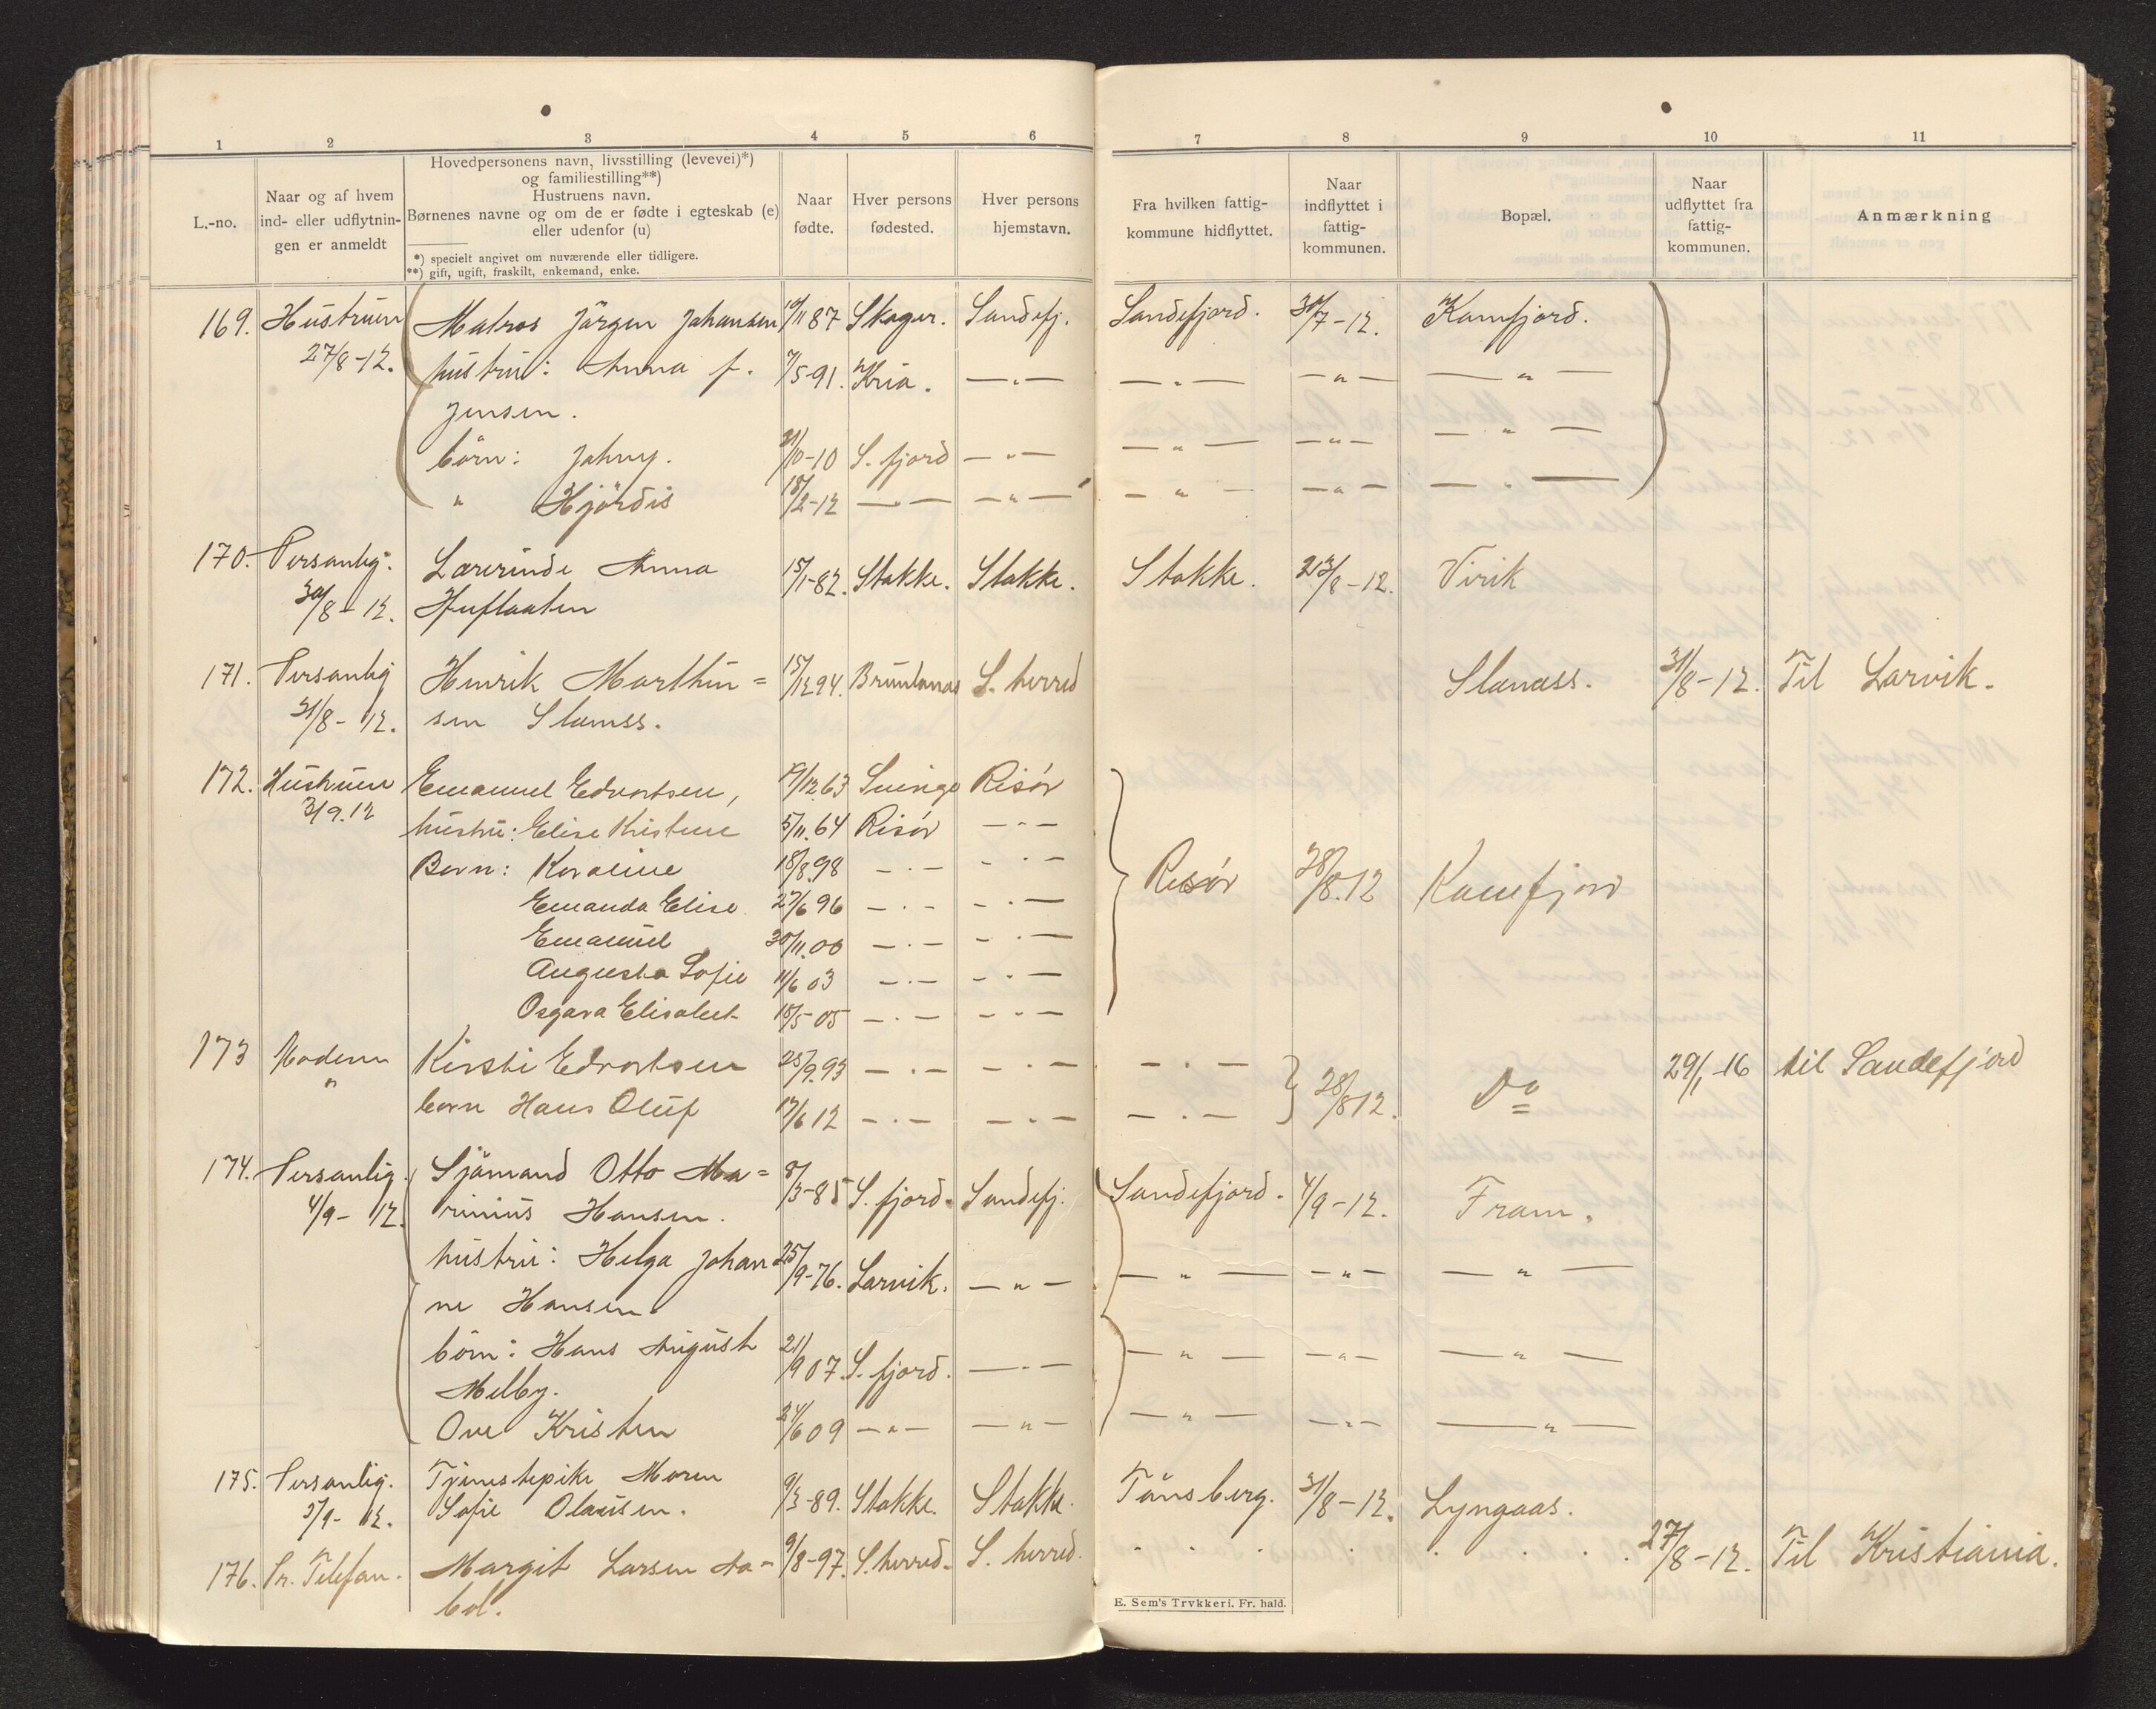 1 2 3 4 5 6 7 8 9 10 11
L.-no.
Naar og af hvem
ind- eller udflytnin-
gen er anmeldt
Hovedpersonens navn, livsstilling (levevei)*)
og familiestilling**)
Hustruens navn.
Børnenes navne og om de er fødte i egteskab (e)
eller udenfor (u)
*) specielt angivet om nuværende eller tidligere.
**) gift, ugift, fraskilt, enkemand, enke.
Naar
fødte.
Hver persons
fødested.
Hver persons
hjemstavn.
Fra hvilken fattig-
kommune hidflyttet.
Naar
indflyttet i
fattig-
kommunen.
Bopæl.
Naar
udflyttet fra
fattig-
kommunen.
Anmærkning
169. Hustruen Matros Jörgen Johansen 10/11 87 Skoger. Sandefj. Sandefjord. 30/7-12. Kamfjord.
27/8-12. hustru: Anna f. 7/5-91. Kria. — " — — " — — " — — " —
Jensen.
börn: Johny. 21/10-10 S. fjord — " — — " — — " — — " —
" Hjördis 18/2-12 — " — — " — — " — — " — — " —
170. Personlig. Lærerinde Anna 15/1-82. Stokke. Stokke. Stokke. 23/8-12. Virik
30/8-12. Huflaaten
171. Personlig Henrik Marthin= 15/12 94. Brunlanæs S. herred 31/8-12. Til Larvik.
31/8-12. sen
172. Hustruen Emanuel Edvartsen, 19/12 63 Risör
3/9.12 hustru: Elise Kristene 5/11.64 Risör — " —
Born: Karoline 18/8.98 — " — — " — Risör 28/8.12 Kamfjord
Emanda Elise 27/6 96 — " — — " —
Emanuel 30/11.00 — " — — " —
Augusta Sofie 11/6 03 — " — — " —
Osgara Elisabet 15/5-05 — " — — " —
173 Moderen Kirsti Edvartsen 25/9.93 — " — — " — — " — 28/8 12. Do 29/1-16 til Sandefjord
" born Hans Oluf 17/6 12 — " — — " — — " —
174. Personlig. Sjömand Otto Ma= 8/3-85 S. fjord. Sandefj. Sandefjord. 4/9-12. Fram.
4/9-12. rinius Hansen.
hustru: Helga Johan= 25/9-76. Larvik. — " — — " — — " — — " —
ne Hansen
börn: Hans August 21/9 07 S. fjord. — " — — " — — " — — " —
Melby.
Ove Kristen 24/6 09 — " — — " — — " — — " — — " —
175. Personlig. Tjenestepike Maren 9/3-89. Stokke. Stokke. Tönsberg. 31/8-12. Lyngaas.
5/9-12. Sofie Olausen.
176. Pr. Telefon. Margit Larsen Aa- 9/8-97. S. herred. S. herred. 27/8-12. Til Kristiania.
bol.
E. Sem's Trykkeri. Fr.hald.